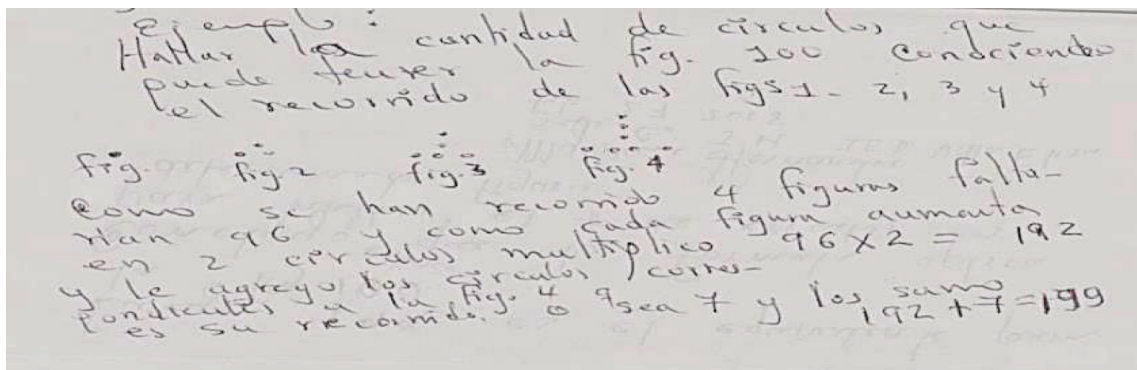 Ejemplo:
Hallar la cantidad de circulos que
puede tener la fig. 100 conociendo
el recorrido de las figs 1 - 2, 3 y 4
fig. fig. 2 fig. 3 fig. 4
Como se han recorrido 4 figuras falta-
rian 96 y como cada figura aumenta
en 2 circulos multiplico 96 x 2 = 192
y le agrego los circulos corres-
pondientes a la fig. 4 o sea 7 y los sumo
es su recorrido. 192 + 7 = 199